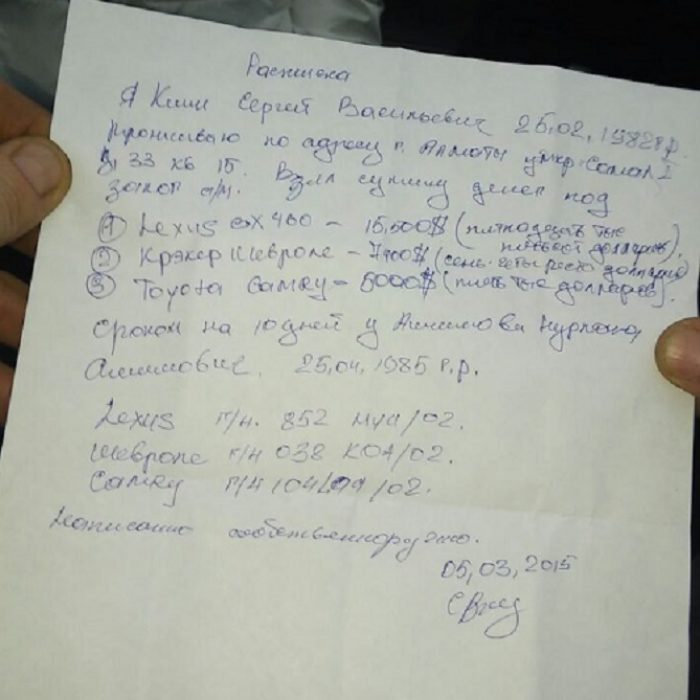 Расписка
Я Ким Сергей Васильевич 25,02,1982 г.р.
Проживаю по адресу г. Алматы умкр-Самал 1
д 33 кв 15. Взял сумму денег под
залог а/м.
① Lexus GX 460 – 15,500$ (пятнадцать тыс
пятьсот долларов).
② Крякер Шевроле – 7400$ (семь четыреста долларов)
③ Toyota Camry – 5000$ (пять тыс долларов).
Сроком на 10 дней у Нурлана
Алимович. 25,04,1985 г.р.
Lexus г/н. 852 /02.
Шевроле г/н 038 KOA/02.
Camry г/н /02.
Написано собственноручно.
05,03,2015